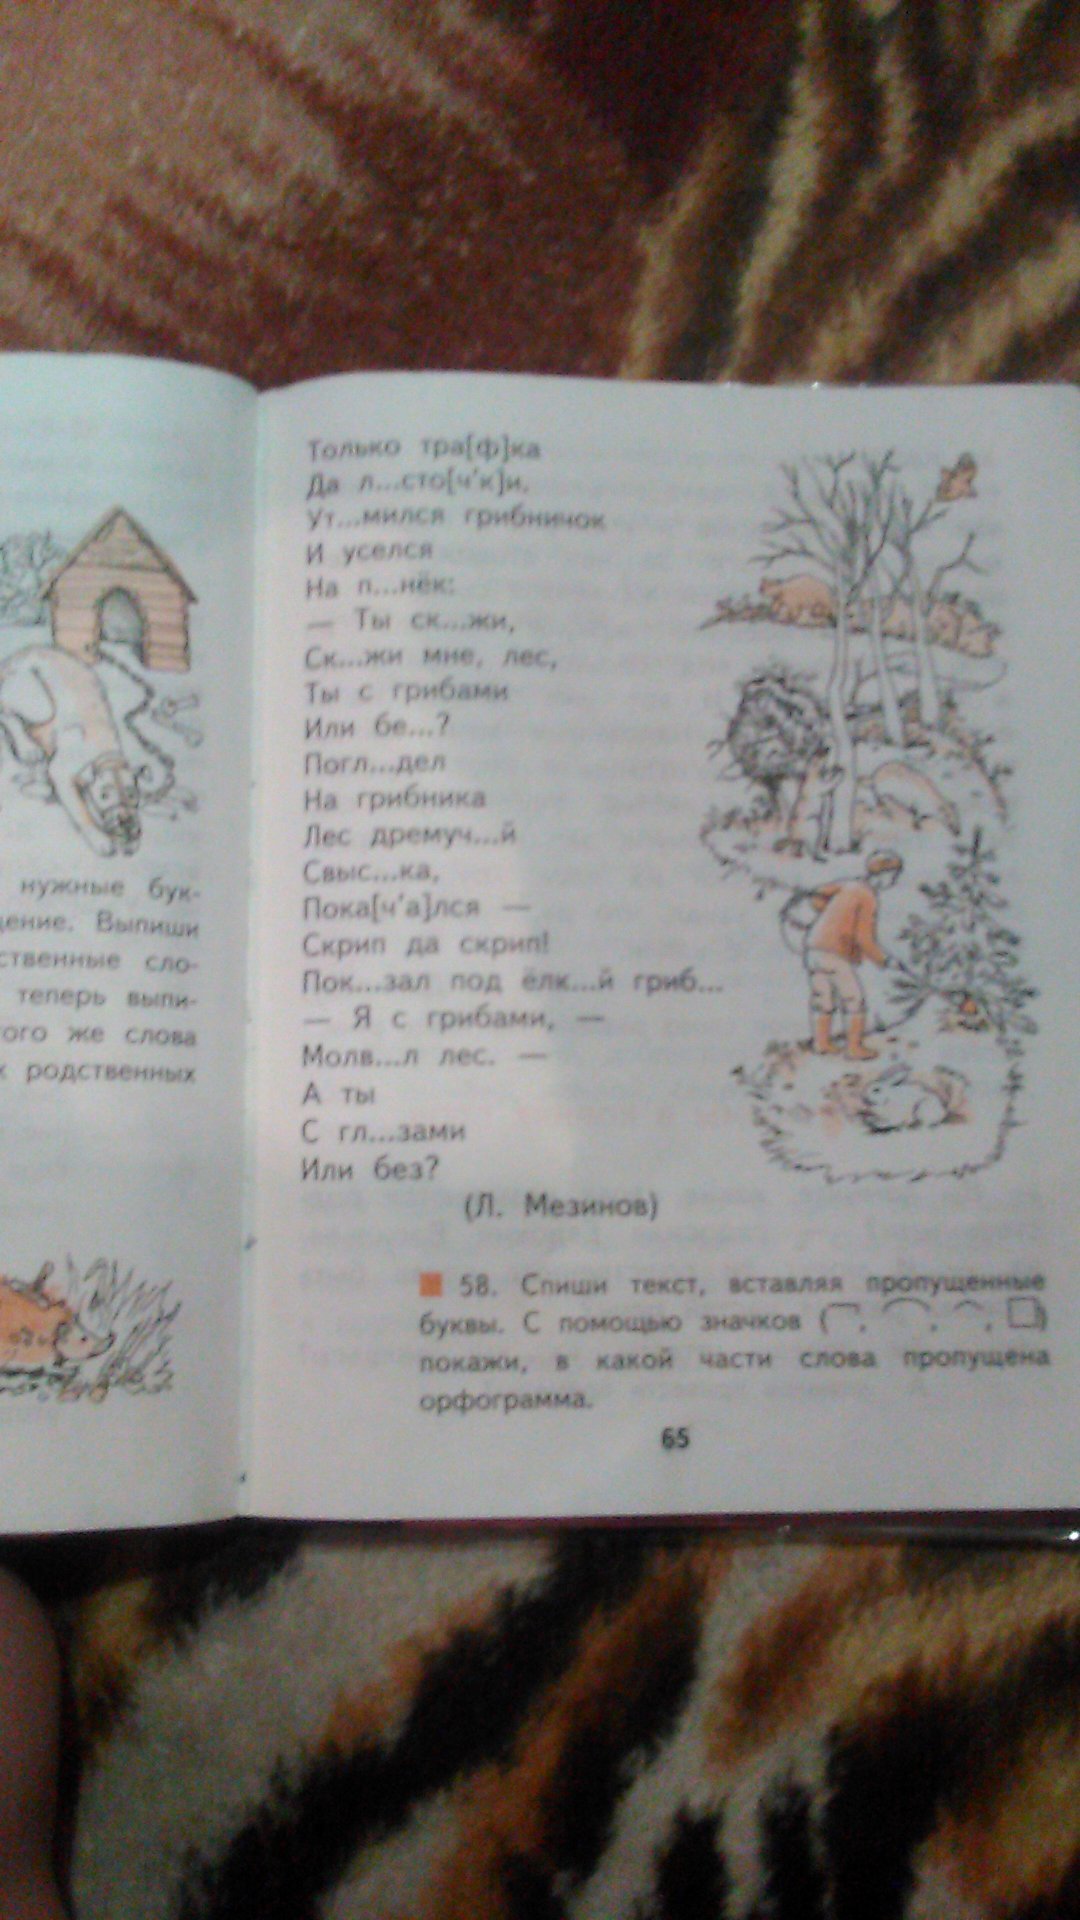 нужные бук-
дение. Выпиши
ственные сло-
теперь выпи-
того же слова
х родственных
Только тра[ф]ка
Да л...сто[ч'к]и.
Ут...мился грибничок
И уселся
На п...нёк:
— Ты ск...жи,
Ск...жи мне, лес,
Ты с грибами
Или бе...?
Погл...дел
На грибника
Лес дремуч...й
Свыс...ка,
Пока[ч'а]лся —
Скрип да скрип!
Пок...зал под ёлк...й гриб...
— Я с грибами, —
Молв...л лес. —
А ты
С гл...зами
Или без?
(Л. Мезинов)
58. Спиши текст, вставляя пропущенные
буквы. С помощью значков (¬, ⌒, ^, □)
покажи, в какой части слова пропущена
орфограмма.
65